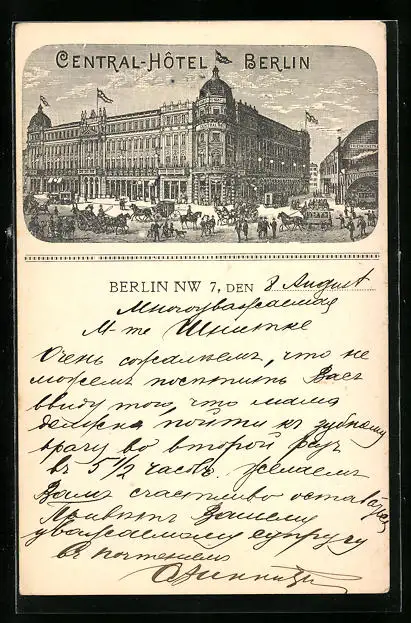 CENTRAL-HÔTEL BERLIN
BERLIN NW 7, DEN 8 August
Многоуважаемая
М-me Шнитке
Очень сожалѣемъ, что не
можемъ посѣтить Васъ
ввиду того, что мама
должна пойти къ зубному
врачу во второй разъ
въ 5 1/2 часовъ. Желаемъ
Вамъ счастливо оставаться
Привѣтъ Вашему
уважаемому супругу
Съ почтеніемъ